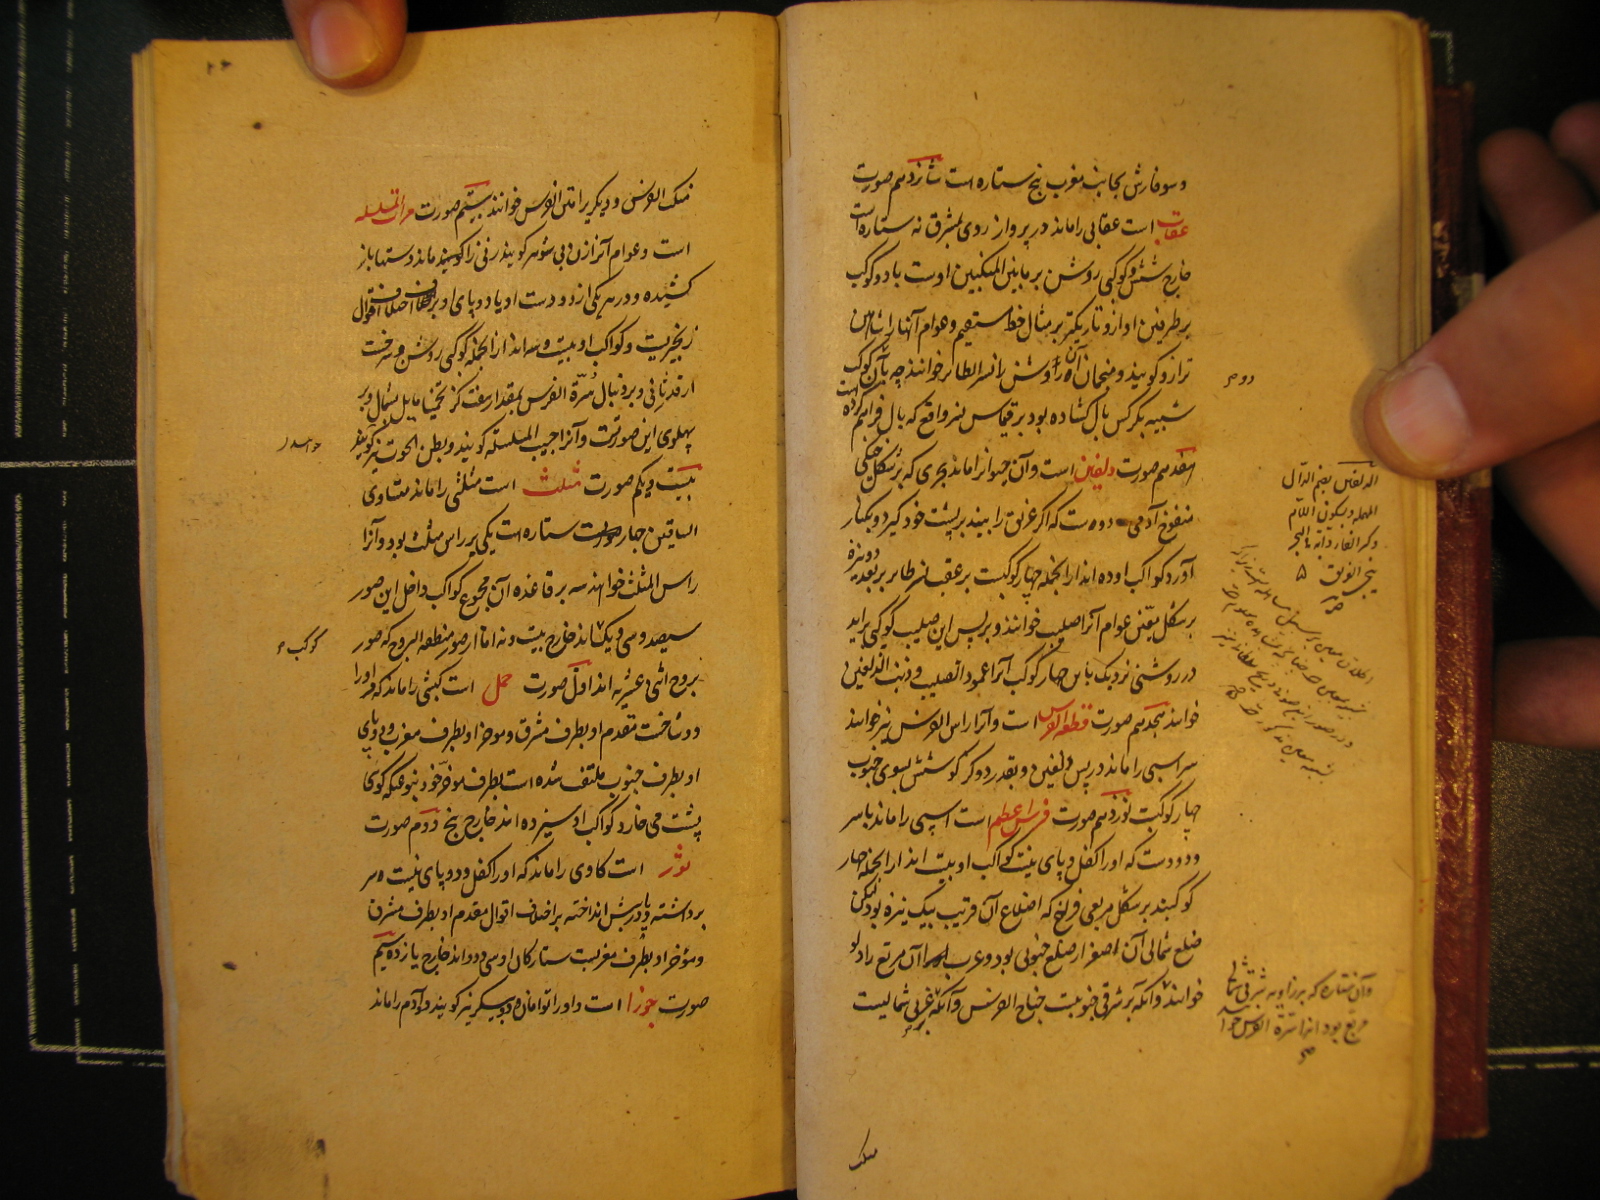 و سوفارش بجانب مغرب پنج ستاره است شانزدهم صورت
عقاب است عقابی را ماند در پرواز روی بمشرق نه ستاره است
خارج شش و کوکبی روشن بر مابین المنکبین اوست با دو کوکب
بر طرفین او ازو تاریکتر بر مثال خط مستقیم و عوام آنها را شاهین
ترازو گویند و منجمان آن روشن را نسر الطائر خوانند چه با آن دو کوکب
شبیه بکرکس بال گشاده بود بر قیاس نسر واقع که بال فراهم کرده است
هفدهم صورت دلفین است و آن حیوانی را ماند بحری که بر شکل خیکی
منفوخ آدمی دوست که اگر غریق را بیند بر پشت خود گیرد و بکنار
آورد کواکب او ده اند از آنجمله چهار کوکبست بر عقب نسر طایر ببعد دو نیزه
بر شکل معین عوام آنرا صلیب خوانند و بر پس این صلیب کوکبی برآید
در روشنی نزدیک باین چهار کوکب آنرا عمود الصلیب و ذنب الدلفین
خوانند هجدهم صورت قطعة الفرس است و آنرا راس الفرس نیز خوانند
سر اسبی را ماند در پس دلفین و بقدر دو گز کوشش بسوی جنوب
چهار کوکبست نوزدهم صورت فرس اعظم است اسپی را ماند با سر
و دو دست که او را کفل و پای نیست کواکب او بیست اند از آنجمله چهار
کوکبند بر شکل مربعی فراخ که اضلاع آن قریب بیک نیزه بود لیکن
ضلع شمالی آن اصغر از ضلع جنوبی بود و عرب آن مربع را دلو
خوانند و آنکه بر شرقی جنوبیست جناح الفرس و آنکه بر غربی شمالیست
دوم
الدلفین بضم الدال
المهمله و سکون اللام
و کسر الفاء دابة فی البحر
ینجی الغریق
و آن ستاره که بر زاویه شرقی شمالی
مربع بود آنرا سرة الفرس خوانند
منکب
منکب الفرس و دیگر را متن الفرس خوانند بیستم صورت مراة المسلسله
است و عوام آنرا زن بی شوهر گویند زنی را ماند دستها باز
کشیده و در هر یکی از دو دست او یا دو پای او بر اختلاف اقوال
زنجیریست و کواکب او بیست و سه اند از آنجمله کوکبی روشن و سرخست
از قدر ثانی و بر دنبال سرة الفرس بمقدار هفت گز تخمینا مایل بشمال و بر
پهلوی این صورتست و آنرا جنب المسلسله گویند و بطن الحوت نیز گویند
بیست و یکم صورت مثلث است مثلثی را ماند متساوی
الساقین چهار ستاره است یکی بر راس مثلث بود و آنرا
راس المثلث خوانند سه بر قاعده آن مجموع کواکب داخل این صور
سیصد و سی و یک اند خارج بیست و نه اما از صور منطقه البروج که صور
بروج اثنی عشریه اند اول صورت حمل است کبشی را ماند که او را
دو شاخست مقدم او بطرف مشرق و موخر او بطرف مغرب و پای
او بطرف جنوب ملتفت شده است بطرف موخر خود بنوعیکه گویا
پشت می خارد کواکب او سیزده اند خارج پنج دوم صورت
ثور است گاوی را ماند که او را کفل و دو پای نیست و سر
برداشته یا در پیش انداخته بر اختلاف اقوال مقدم او بطرف مشرق
و موخر او بطرف مغربست ستارگان او سی و دو اند خارج یازده سیم
صورت جوزا است و او را توامان و دو پیکر نیز گویند دو آدم را ماند
کوکب